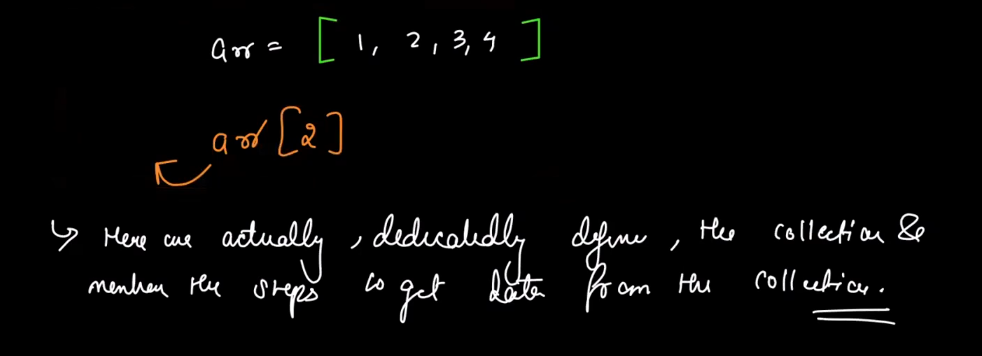 arr = [ 1, 2, 3, 4 ]
arr [2]
↳ Here we actually, dedicatedly define, the collection &
mention the steps to get data from the collection.